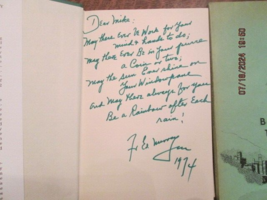 Dear
May there Ever Be Work for Your
hands to do,
May there Ever Be in Your purse
a Coin or two,
May the sun Ever shine on
Your Windowpane
and May there always For you
Be a Rainbow after Each
rain!
1974
07/18/2024 16:50
B